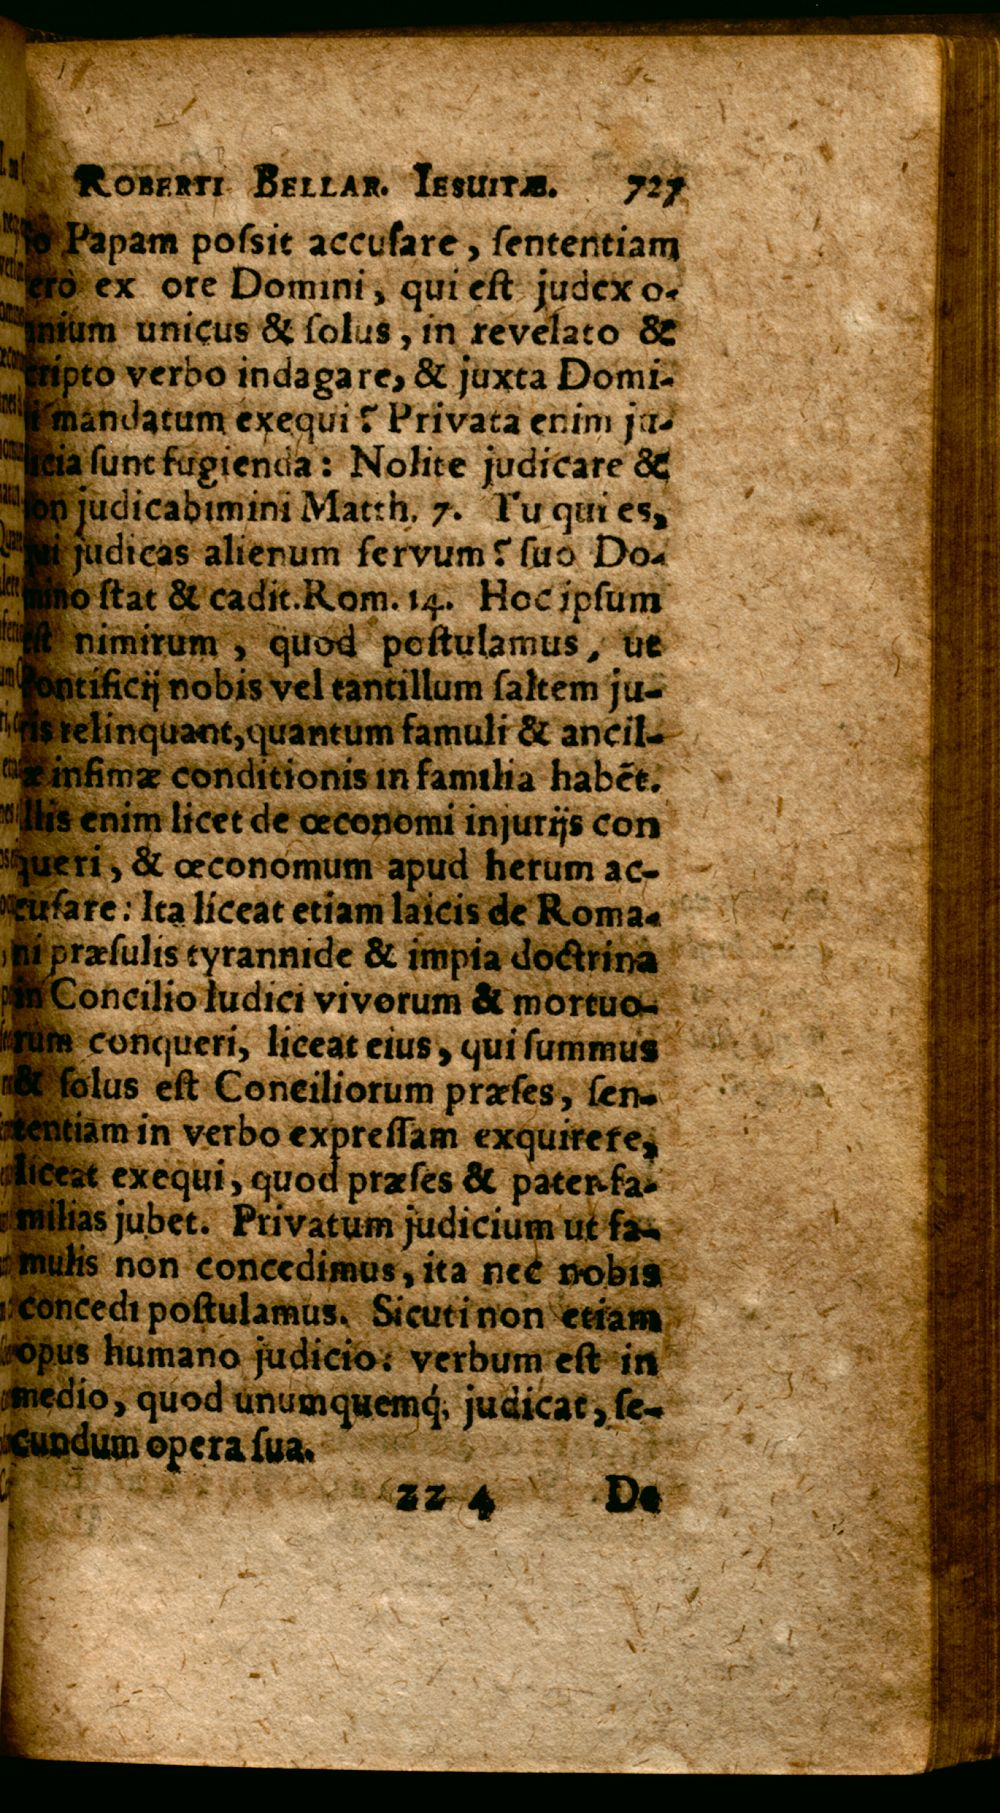 ROBERTI BELLAR. IESUITÆ. 727
ſo Papam poſsit accuſare, ſententiam
erò ex ore Domini, qui eſt judex o-
mnium unicus & ſolus, in revelato &
cripto verbo indagare, & juxta Domi-
i mandatum exequi? Privata enim ju-
icia ſunt fugienda: Nolite judicare &
on judicabimini Matth. 7. Tu qui es,
qui judicas alienum ſervum? ſuo Do-
mino ſtat & cadit. Rom. 14. Hoc ipſum
eſt nimirum, quod poſtulamus, ut
Pontificij nobis vel tantillum ſaltem ju-
ris relinquant, quantum famuli & ancil-
æ infimæ conditionis in familia habẽt.
llis enim licet de œconomi injurijs con
queri, & œconomum apud herum ac-
cuſare: Ita liceat etiam laicis de Roma-
ni præſulis tyrannide & impia doctrina
in Concilio Iudici vivorum & mortuo-
rum conqueri, liceat eius, qui ſummus
& ſolus eſt Conciliorum præſes, ſen-
tentiam in verbo expreſſam exquirere,
liceat exequi, quod præſes & pater-fa-
milias jubet. Privatum judicium ut fa-
mulis non concedimus, ita nec nobis
concedi poſtulamus. Sicuti non etiam
opus humano judicio: verbum eſt in
medio, quod unumquemq́; judicat, ſe-
cundum opera ſua.
zz 4 De